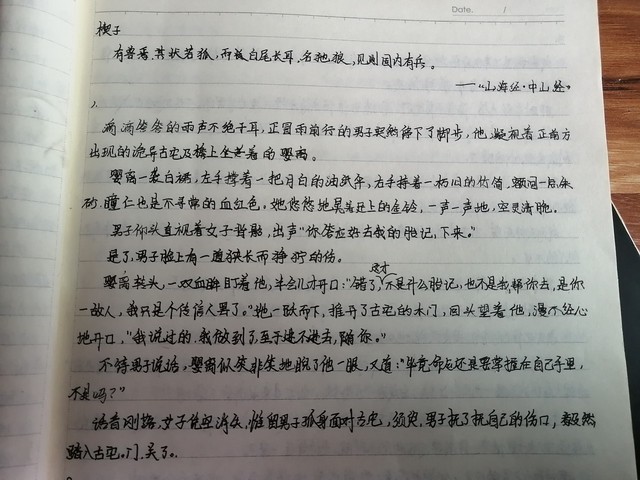 Date. /
楔子
有兽焉,其状若狐,而被白尾长耳,名狍狼,见则国内有兵。
——《山海经·中山经》
1.
滴滴答答的雨声不绝于耳,正冒雨前行的男子突然停下了脚步,他凝视着正前方
出现的诡异古宅及檐上坐着的婴离。
婴离一袭白裙,左手撑着一把月白的油纸伞,右手持着一柄旧的竹简,额间一点朱
砂,瞳仁也是不寻常的血红色,她悠悠地晃着足上的金铃,一声一声地,空灵清脆。
男子仰头直视着女子背影,出声"你答应好去我的胎记,下来。"
是了,男子脸上有一道狭长而狰狞的伤。
婴离转头,一双血眸盯着他,半会儿才开口:"错了,这才不是什么胎记,也不是我帮你去,是你
一故人,我只是个传信人罢了。"她一跃而下,推开了古宅的木门,回头望着他,漫不经心
地开口,"我说过的,我做到了,至于进不进去,随你。"
不待男子说话,婴离似笑非笑地睨了他一眼,又道:"毕竟命运还是要掌握在自己手里,
不是吗?"
语音刚落,女子凭空消失,惟留男子孤身面对古宅,须臾,男子抚了抚自己的伤口,毅然
踏入古宅。门,关了。